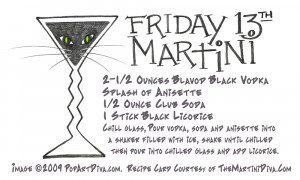 FRIDAY 13TH
MARTINI
2-1/2 Ounces Blavod Black Vodka
Splash of Anisette
1/2 Ounce Club Soda
1 Stick Black Licorice
Chill glass, Pour vodka, soda and anisette into
a shaker filled with ice, shake until chilled
then pour into chilled glass and add licorice.
Image ©2009 PopArtDiva.com. Recipe Card Courtesy of TheMartiniDiva.Com